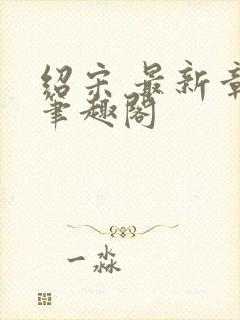 绍宋 最新章
笔趣阁
一淼